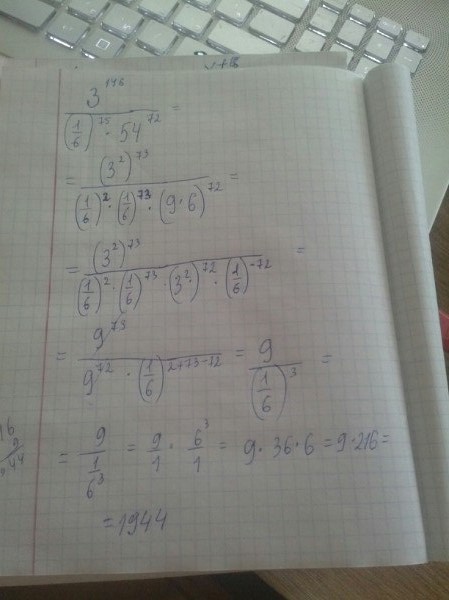 3^146 / ((1/6)^75 · 54^72) =
= (3^2)^73 / ((1/6)^2 · (1/6)^73 · (9·6)^72) =
= (3^2)^73 / ((1/6)^2 · (1/6)^73 · (3^2)^72 · (1/6)^-72) =
= 9^73 / (9^72 · (1/6)^2+73-72) = 9 / (1/6)^3 =
= 9 / (1/6^3) = 9/1 · 6^3/1 = 9·36·6 = 9·216 =
= 1944